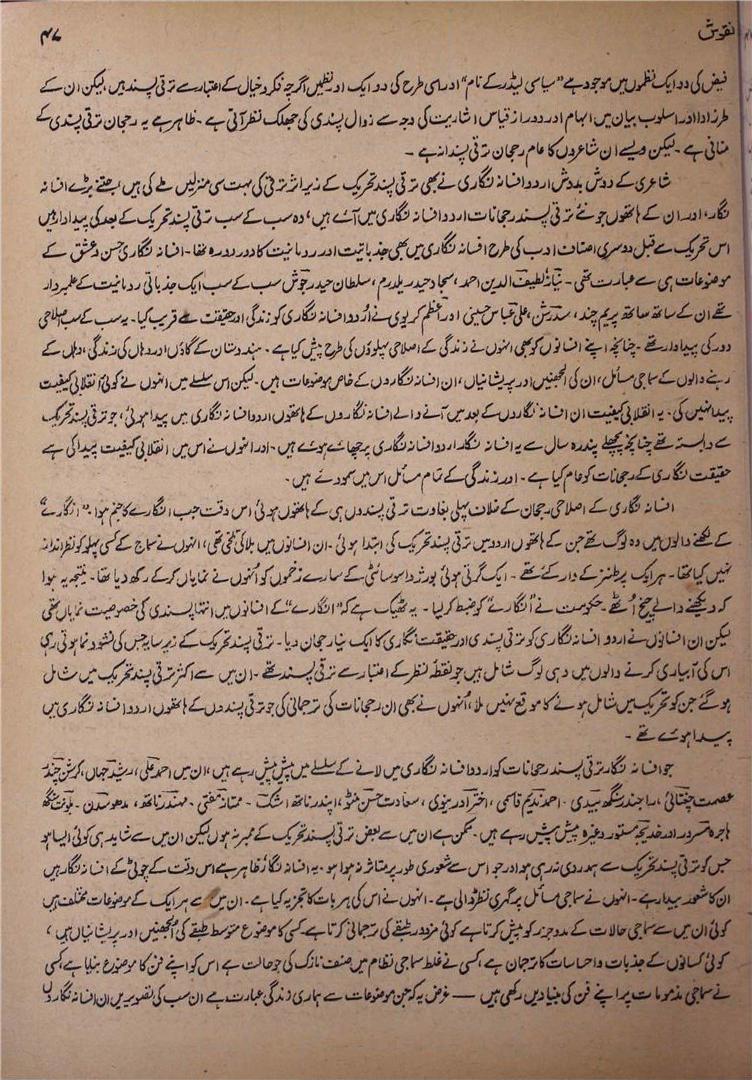 نقوش
۴۷
فیض کی دو ایک نظموں میں موجود ہے “سیاسی لیڈر کے نام” اور اسی طرح کی دو ایک اور نظمیں اگرچہ فکر و خیال کے اعتبار سے ترقی پسند ہیں، لیکن ان کے
طرزِ ادا اور اسلوب بیان میں ابہام اور دور از قیاس اشاریت کی وجہ سے زوال پسندی کی جھلک نظر آتی ہے۔ ظاہر ہے یہ رجحان ترقی پسندی کے
منافی ہے۔ لیکن ویسے ان شاعروں کا عام رجحان ترقی پسندانہ ہے۔
شاعری کے دوش بدوش اردو افسانہ نگاری نے بھی ترقی پسند تحریک کے زیر اثر ترقی کی بہت سی منزلیں طے کی ہیں جتنے بڑے افسانہ
نگار، اور ان کے ہاتھوں جو نئے ترقی پسند رجحانات اردو افسانہ نگاری میں آئے ہیں، وہ سب کے سب ترقی پسند تحریک کے بعد کی پیداوار ہیں
اس تحریک سے قبل دوسری اصناف ادب کی طرح افسانہ نگاری میں بھی جذباتیت اور رومانیت کا دور دورہ تھا۔ افسانہ نگاری حسن و عشق کے
موضوعات ہی سے عبارت تھی۔ نیاز، لطیف الدین احمد، سجاد حیدر یلدرم، سلطان حیدر جوش سب کے سب ایک جذباتی رومانیت کے علمبردار
تھے ان کے ساتھ ساتھ پریم چند، سدرشن، علی عباس حسینی اور اعظم کریوی نے اُردو افسانہ نگاری کو زندگی اور حقیقت سے قریب کیا۔ یہ سب کے سب اصلاحی
دور کی پیداوار تھے۔ چنانچہ اپنے افسانوں کو بھی انہوں نے زندگی کے اصلاحی پہلوؤں کی طرح پیش کیا ہے۔ ہندوستان کے گاؤں اور وہاں کی زندگی، وہاں کے
رہنے والوں کے سماجی مسائل، ان کی الجھنیں اور پریشانیاں، ان افسانہ نگاروں کے خاص موضوعات ہیں۔ لیکن اس سلسلے میں انہوں نے کوئی انقلابی کیفیت
پیدا نہیں کی۔ یہ انقلابی کیفیت ان افسانہ نگاروں کے بعد میں آنے والے افسانہ نگاروں کے ہاتھوں اردو افسانہ نگاری میں پیدا ہوئی، جو ترقی پسند تحریک
سے وابستہ تھے چنانچہ پچھلے پندرہ سال سے یہ افسانہ نگار اردو افسانہ نگاری پر چھائے ہوئے ہیں۔ اور انہوں نے اس میں انقلابی کیفیت پیدا کی ہے
حقیقت نگاری کے رجحانات کو عام کیا ہے۔ اور زندگی کے تمام مسائل اس میں سمو دئے ہیں۔
افسانہ نگاری کے اصلاحی رجحان کے خلاف پہلی بغاوت ترقی پسندوں ہی کے ہاتھوں ہوئی اس وقت جب انگارے کا جنم ہوا۔ “انگارے”
کے لکھنے والوں میں وہ لوگ تھے جن کے ہاتھوں اردو میں ترقی پسند تحریک کی ابتدا ہوئی۔ ان افسانوں میں بلا کی تلخی تھی، انہوں نے سماج کے کسی پہلو کو نظر انداز
نہیں کیا تھا۔ ہر ایک پر طنز کے وار کئے تھے۔ ایک گرتی ہوئی بورژوا سوسائٹی کے سارے زخموں کو انہوں نے نمایاں کر کے رکھ دیا تھا۔ نتیجہ یہ ہوا
کہ دیکھنے والے چیخ اُٹھے۔ حکومت نے “انگارے” کو ضبط کر لیا۔ یہ ٹھیک ہے کہ “انگارے” کے افسانوں میں انتہا پسندی کی خصوصیت نمایاں تھی
لیکن ان افسانوں نے اردو افسانہ نگاری کو ترقی پسندی اور حقیقت نگاری کا ایک نیا رجحان دیا۔ ترقی پسند تحریک کے زیر سایہ جس کی نشوونما ہوتی رہی
اس کی آبیاری کرنے والوں میں وہی لوگ شامل ہیں جو نقطۂ نظر کے اعتبار سے ترقی پسند تھے۔ ان میں سے اکثر ترقی پسند تحریک میں شامل
ہو گئے جن کو تحریک میں شامل ہونے کا موقع نہیں ملا، اُنہوں نے بھی ان رجحانات کی ترجمانی کی جو ترقی پسندوں کے ہاتھوں اردو افسانہ نگاری میں
پیدا ہوئے تھے۔
جو افسانہ نگار ترقی پسند رجحانات کو اردو افسانہ نگاری میں لانے کے سلسلے میں پیش پیش رہے ہیں، ان میں احمد علی، رشید جہاں، کرشن چندر
عصمت چغتائی، راجندر سنگھ بیدی۔ احمد ندیم قاسمی، اختر اورینوی، سعادت حسن منٹو، اپندر ناتھ اشک۔ ممتاز مفتی۔ مہندر ناتھ، مدھوسدن۔ بلونت سنگھ
ہاجرہ مسرور اور خدیجہ مستور وغیرہ پیش پیش رہے ہیں۔ ممکن ہے ان میں سے بعض ترقی پسند تحریک کے ممبر نہ ہوں لیکن ان میں سے شاید ہی کوئی ایسا ہو
جس کو ترقی پسند تحریک سے ہمدردی نہ رہی ہو اور جو اس سے شعوری طور پر متاثر نہ ہوا ہو۔ یہ افسانہ نگار ظاہر ہے اس وقت کے چوٹی کے افسانہ نگار ہیں
ان کا شعور بیدار ہے۔ انہوں نے سماجی مسائل پر گہری نظر ڈالی ہے۔ انہوں نے اس کی ہر بات کا تجزیہ کیا ہے۔ ان میں سے ہر ایک کے موضوعات مختلف ہیں
کوئی ان میں سے سماجی حالات کے مدوجزر کو پیش کرتا ہے کوئی مزدور طبقے کی ترجمانی کرتا ہے۔ کسی کا موضوع متوسط طبقے کی اُلجھنیں اور پریشانیاں ہیں،
کوئی کسانوں کے جذبات و احساسات کا ترجمان ہے، کسی نے غلط سماجی نظام میں صنف نازک کی جو حالت ہے اس کو اپنے فن کا موضوع بنایا ہے، کسی
نے سماجی مذمومات پر اپنے فن کی بنیادیں رکھی ہیں —— غرض یہ کہ جن موضوعات سے ہماری زندگی عبارت ہے ان سب کی تصویریں ان افسانہ نگاروں